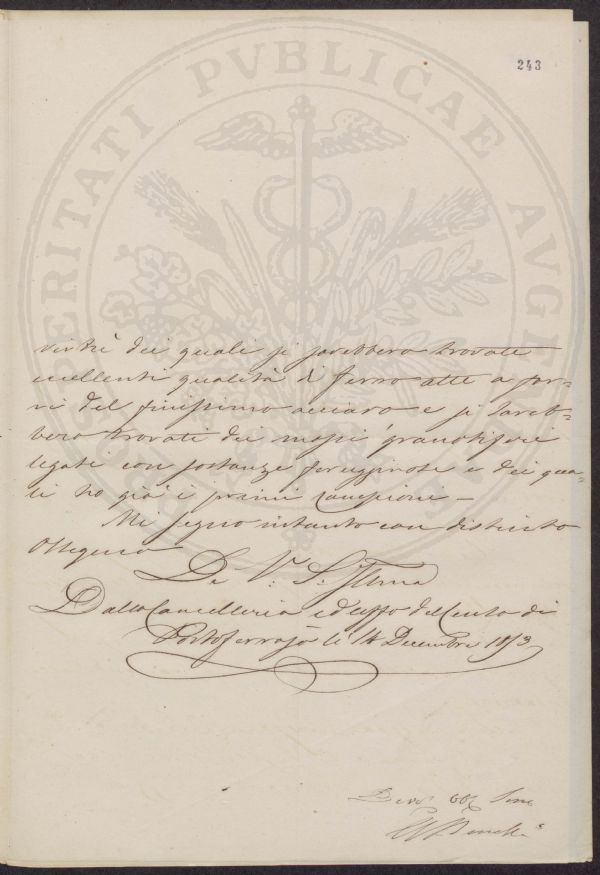 243
PROSPERITATI PVBLICAE AVGENDAE
dei quali si sarebbero trovate
eccellenti qualità di ferro atte a for=
del finissimo acciaro e si sareb=
bero trovati dei massi granatiferi
legati con sostanze ferugginose e dei qua=
li ho già i primi Campioni –
Mi segno intanto con distinto
Ossequio
De V. S. Illma
Dalla Cancelleria ed uffo del Censo di
Portoferrajo li 14 Decembre 18
Devo Obb Serv